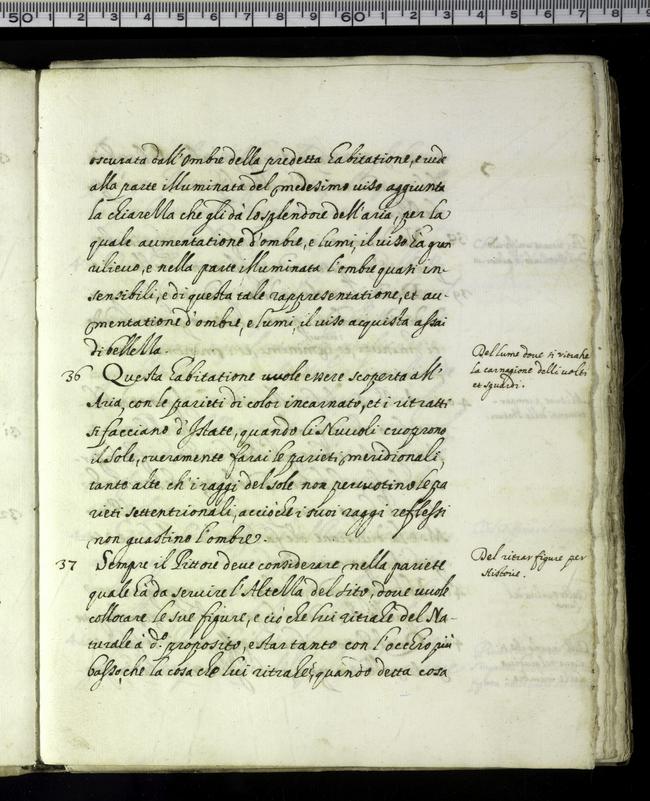 oscurata dall'Ombre della predetta habitatione, e vede
alla parte illuminata del medesimo viso aggiunta
la chiarezza che gli dà lo splendore dell'aria, per la
quale aumentatione d'ombre, e lumi, il viso hà gran
rilievo, e nella parte illuminata l'ombre quasi in-
sensibili, e di questa tale rappresentatione, et au-
mentatione d'ombre, e lumi, il viso acquista assai
di bellezza.
Del lume dove si ritrahe
la carnagione delli volti
et ignudi.
36 Questa habitatione vuole essere scoperta all'
Aria, con le parieti di color incarnato, et i ritratti
si facciano d'Istate, quando li Nuvoli cuoprono
il Sole, overamente farai le parieti meridionali
tanto alte ch'i raggi del Sole non percuotino le pa
rieti settentrionali, acciòche i suoi raggi reflessi
non guastino l'ombre.
Del ritrar figure per
Historie.
37 Sempre il Pittore deve considerare nella pariete
quale hà da servire l'Altezza del sito, dove vuole
collocare le sue figure, e ciò che lui ritrahe del Na-
turale à d.o proposito, e star tanto con l'occhio più
basso, che la cosa che lui ritrahe, quando detta cosa